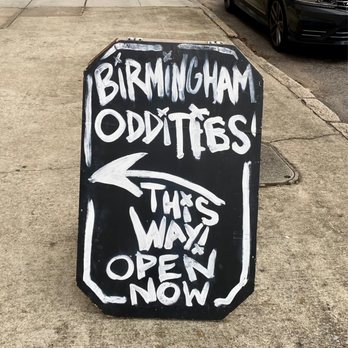 BiRMiNGHAM
ODDiTiES
THiS
WAY!
OPEN
NOW